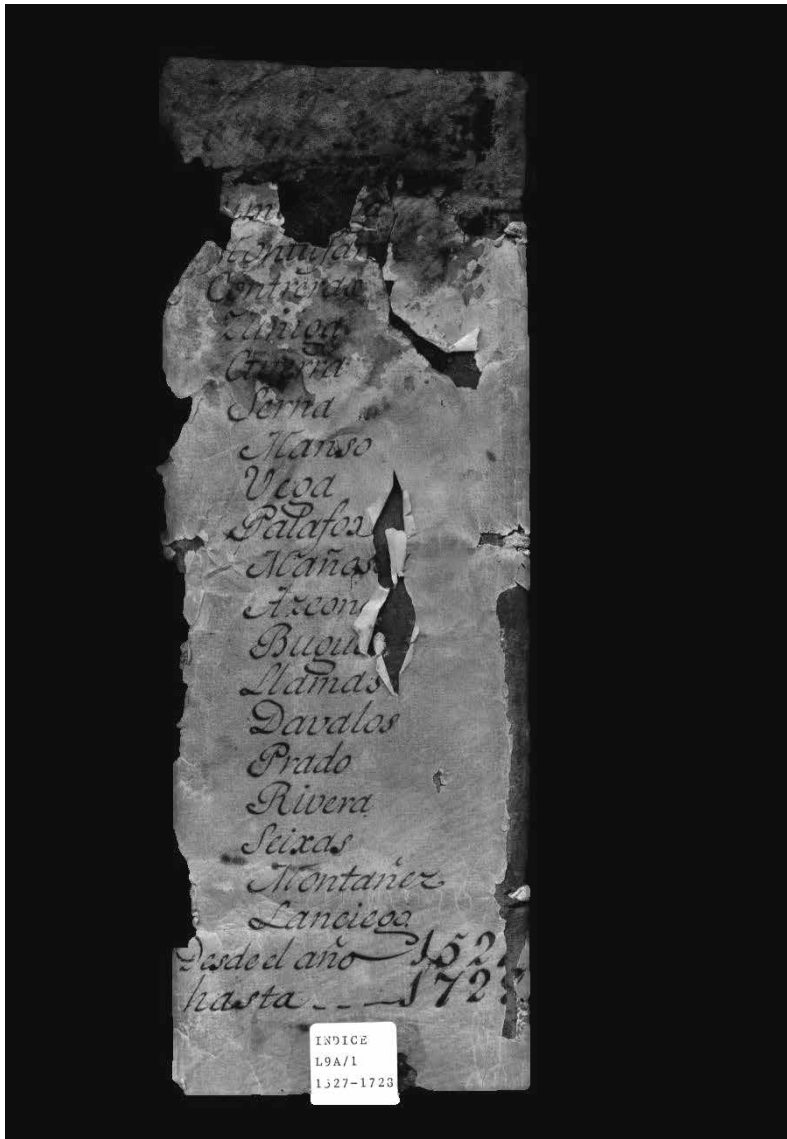 Montufar
Contreras
Zuñiga
Guerra
Serna
Manso
Vega
Palafox
Mañoso
Azcon
Bugu
Llamas
Davalos
Prado
Rivera
Seixas
Montañez
Lanciego
Desde el año 152
hasta - - - 172
INDICE
L9A/1
1527-1728